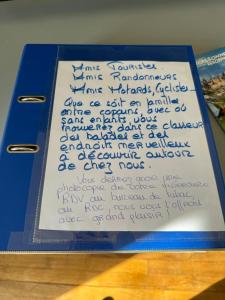 Amis Touristes
Amis Randonneurs
Amis Motards, Cyclistes
Que ce soit en familles
entre copains, avec ou
sans enfants vous
trouverez dans ce classeur
des balades et des
endroits merveilleux
à découvrir autour
de chez nous.
Vous désirez avoir une
photocopie de votre itinéraire
RDV au bureau de tabac
au RDC, nous vous l'offrons
avec grand plaisir